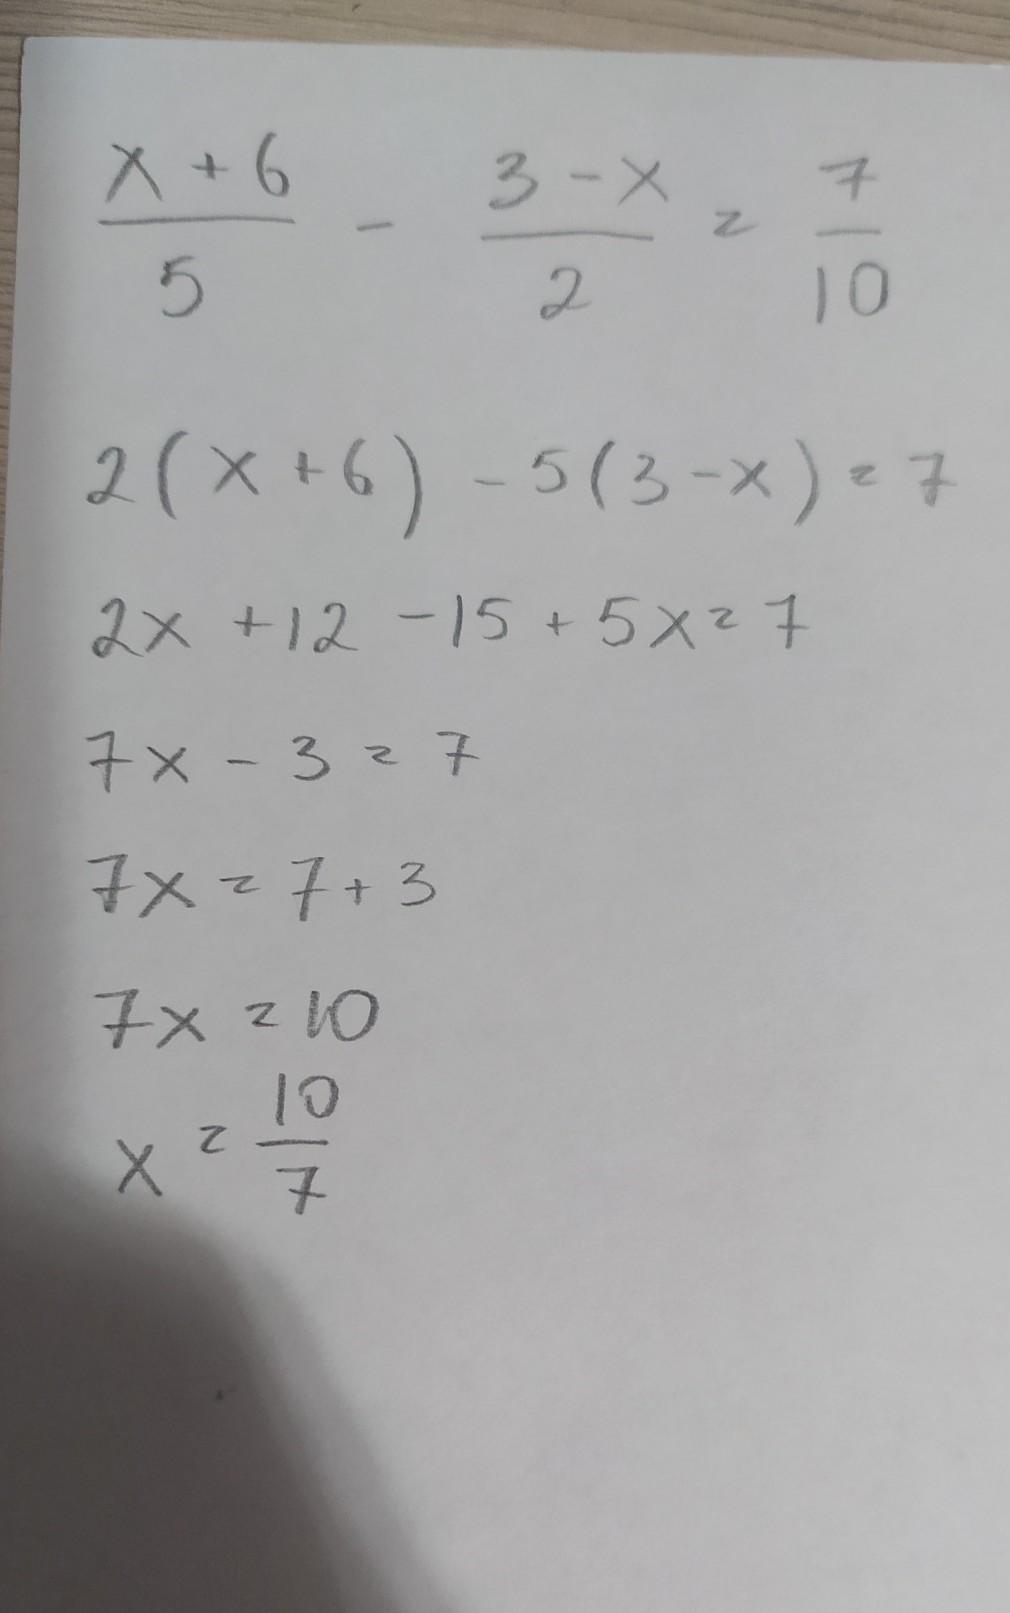 x + 6 / 5 - 3 - x / 2 = 7 / 10
2(x + 6) - 5(3 - x) = 7
2x + 12 - 15 + 5x = 7
7x - 3 = 7
7x = 7 + 3
7x = 10
x = 10 / 7